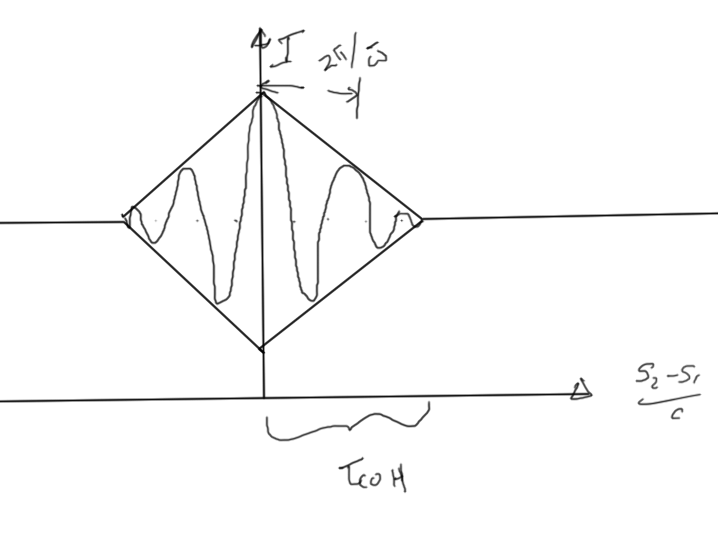 I
2π/ω̄
S₂-S₁
c
τCOH